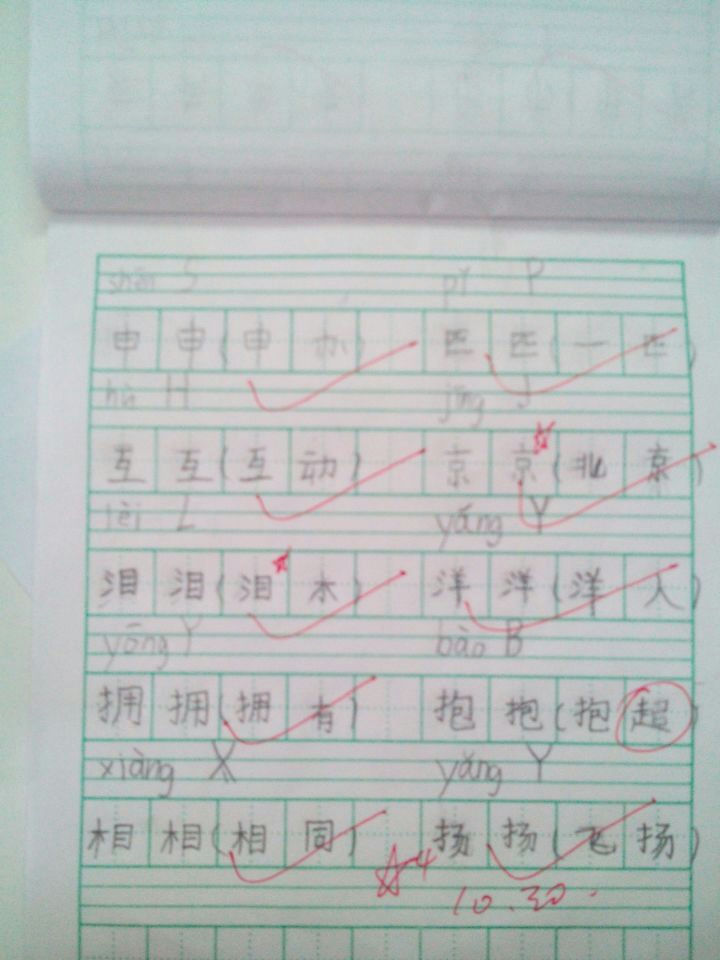 shēn S pǐ P
申 申 (申 办) 匹 匹 (一 匹)
hù H jīng J
互 互 (互 动) 京 京 (北 京)
lèi L yáng Y
泪 泪 (泪 水) 洋 洋 (洋 人)
yōng Y bào B
拥 拥 (拥 有) 抱 抱 (抱 超)
xiàng X yáng Y
相 相 (相 同) 扬 扬 (飞 扬)
☆4
10.30.